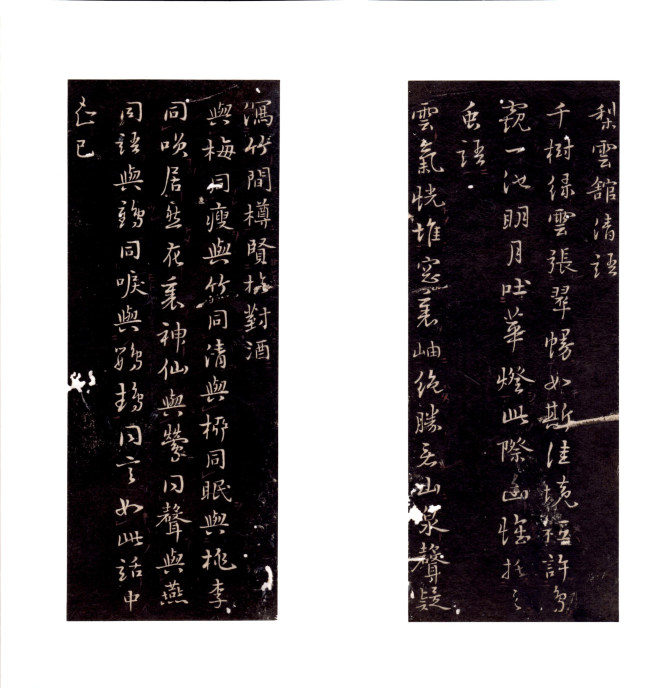 梨雲館清語
千樹緑雲張翠幔如斯佳境秪許鳥
窺一池明月吐華燈此際幽懷托之
魚語
雲氣恍堆窓裏岫絶勝看山泉聲疑
瀉竹間樽賢於對酒
與梅同瘦與竹同清與柳同眠與桃李
同咲居然花裏神仙與鶯同聲與燕
同語與鶴同唳與鸚鵡同言如此話中
知己